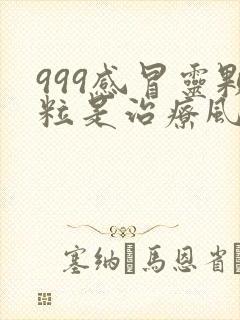 999感冒靈顆
粒是治療風
塞纳·馬恩省